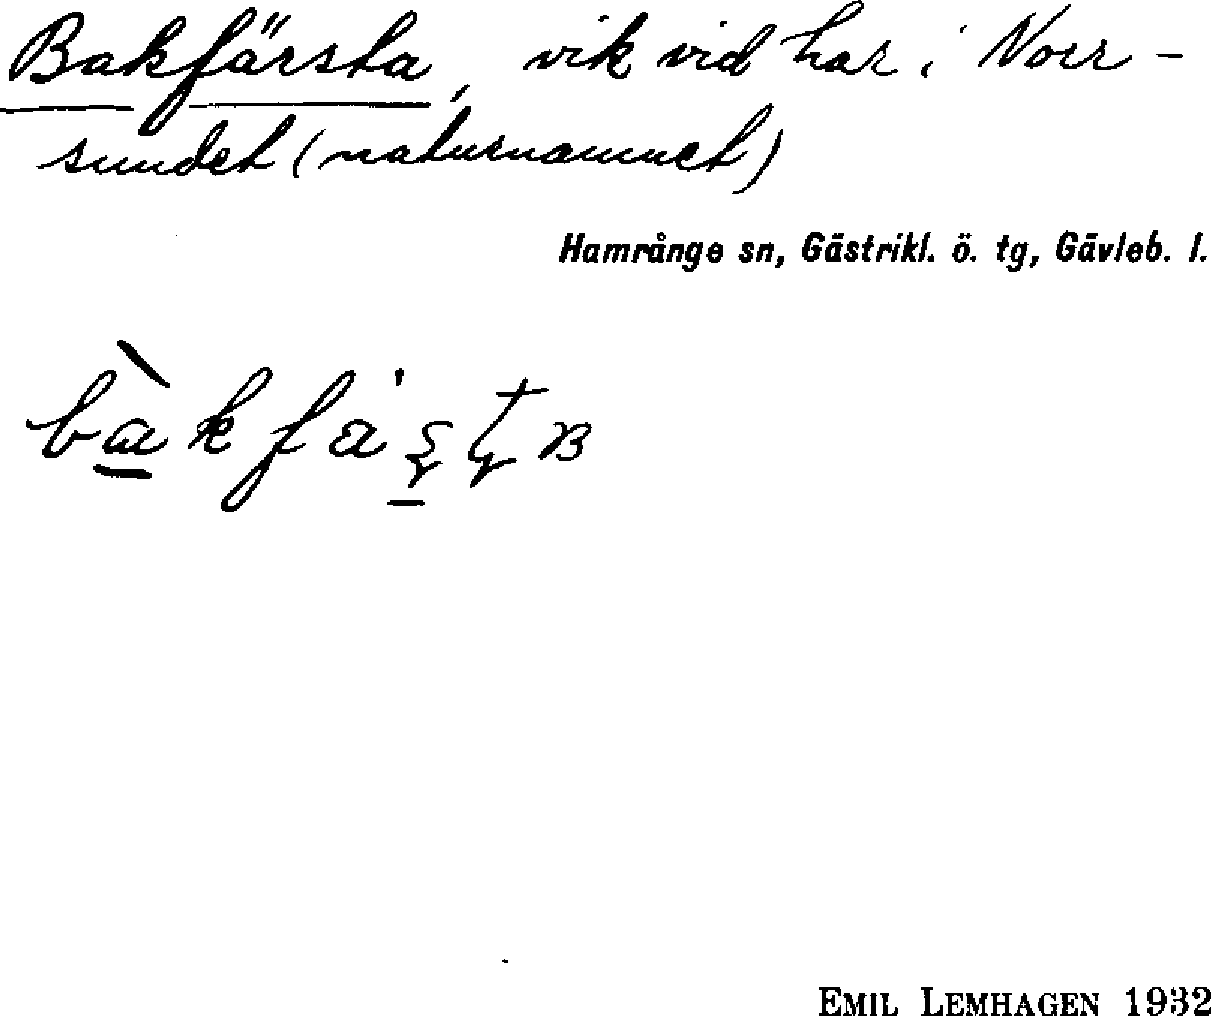 Bakfärsta, vik vid hav i Norr-
sundet (naturnamnet)
Hamrånge sn, Gästrikl. ö. tg, Gävleb. l.
EMIL LEMHAGEN 1932